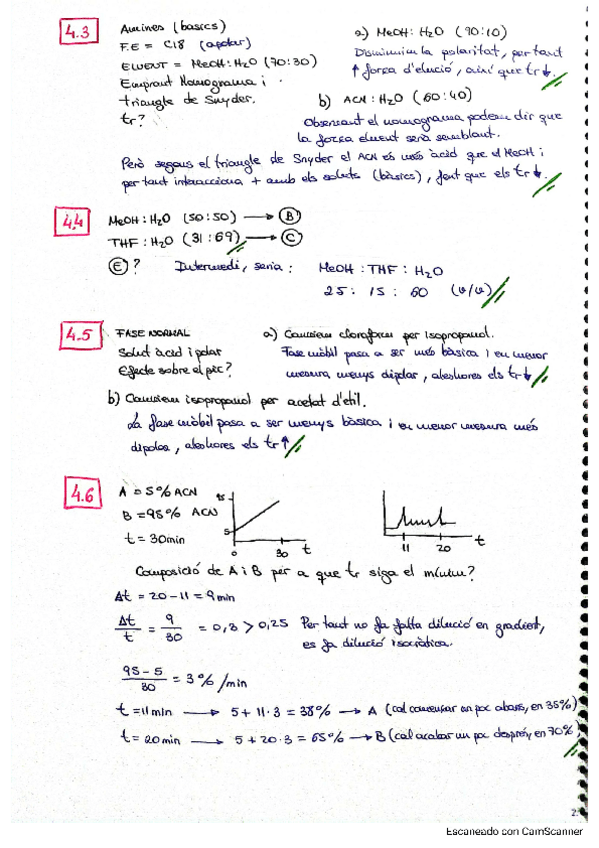 4.3 Amines (bàsics)
F.E = C18 (apolar)
ELUENT = MeOH:H2O (70:30)
Emprant Nomograma i
triangle de Snyder.
tr?
a) MeOH:H2O (90:10)
Disminuim la polaritat, per tant
↑ força d'elució, així que tr↓.
b) ACN:H2O (60:40)
Observant el nomograma podem dir que
la força eluent serà semblant.
Però segons el triangle de Snyder el ACN és més àcid que el MeOH i
per tant interacciona + amb els soluts (bàsics), fent que els tr↓.
4.4 MeOH:H2O (50:50) → B
THF:H2O (31:69) → C
E? Intermedi, seria: MeOH:THF:H2O
25:15:60 (v/v)
4.5 FASE NORMAL
Solut àcid i polar
Efecte sobre el pic?
a) Canviem cloroform per isopropanol.
Fase mòbil passa a ser més bàsica i en menor
mesura menys dipolar, aleshores els tr↓
b) Canviem isopropanol per acetat d'etil.
La fase mòbil passa a ser menys bàsica i en menor mesura més
dipolar, aleshores els tr↑
4.6 A = 5% ACN
B = 95% ACN
t = 30min
95
5
0 30 t
11 20 t
Composició de A i B per a que tr siga el mínim?
Δt = 20-11 = 9 min
Δt/t = 9/30 = 0,3 > 0,25 Per tant no fa falta dilució en gradient,
es fa dilució isocràtica.
95-5/30 = 3%/min
t = 11 min → 5 + 11·3 = 38% → A (cal començar un poc abans, en 35%)
t = 20min → 5 + 20·3 = 65% → B (cal acabar un poc després, en 70%)
2.
Escaneado con CamScanner